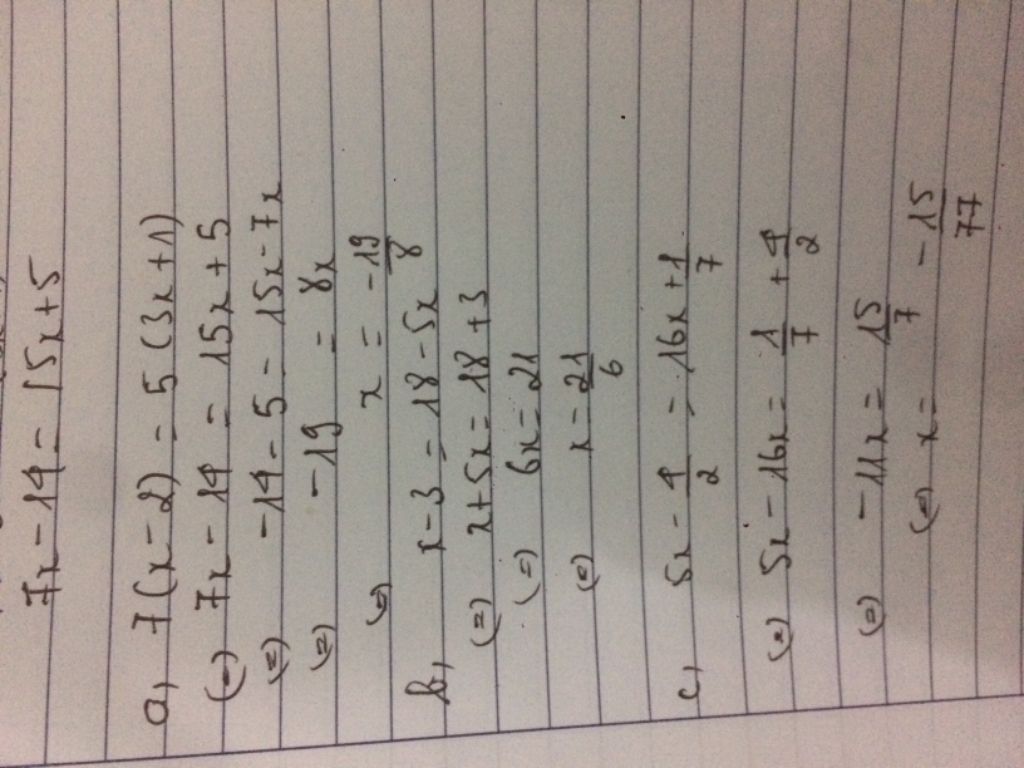 7x - 14 = 15x + 5
a, 7(x - 2) = 5(3x + 1)
(=) 7x - 14 = 15x + 5
(=) -14 - 5 = 15x - 7x
(=) -19 = 8x
(=) x = -19/8
b, x - 3 = 18 - 5x
(=) x + 5x = 18 + 3
(=) 6x = 21
(=) x = 21/6
c, 5x - 4/2 = 16x + 1/7
(=) 5x - 16x = 1/7 + 4/2
(=) -11x = 15/7
(=) x = -15/77